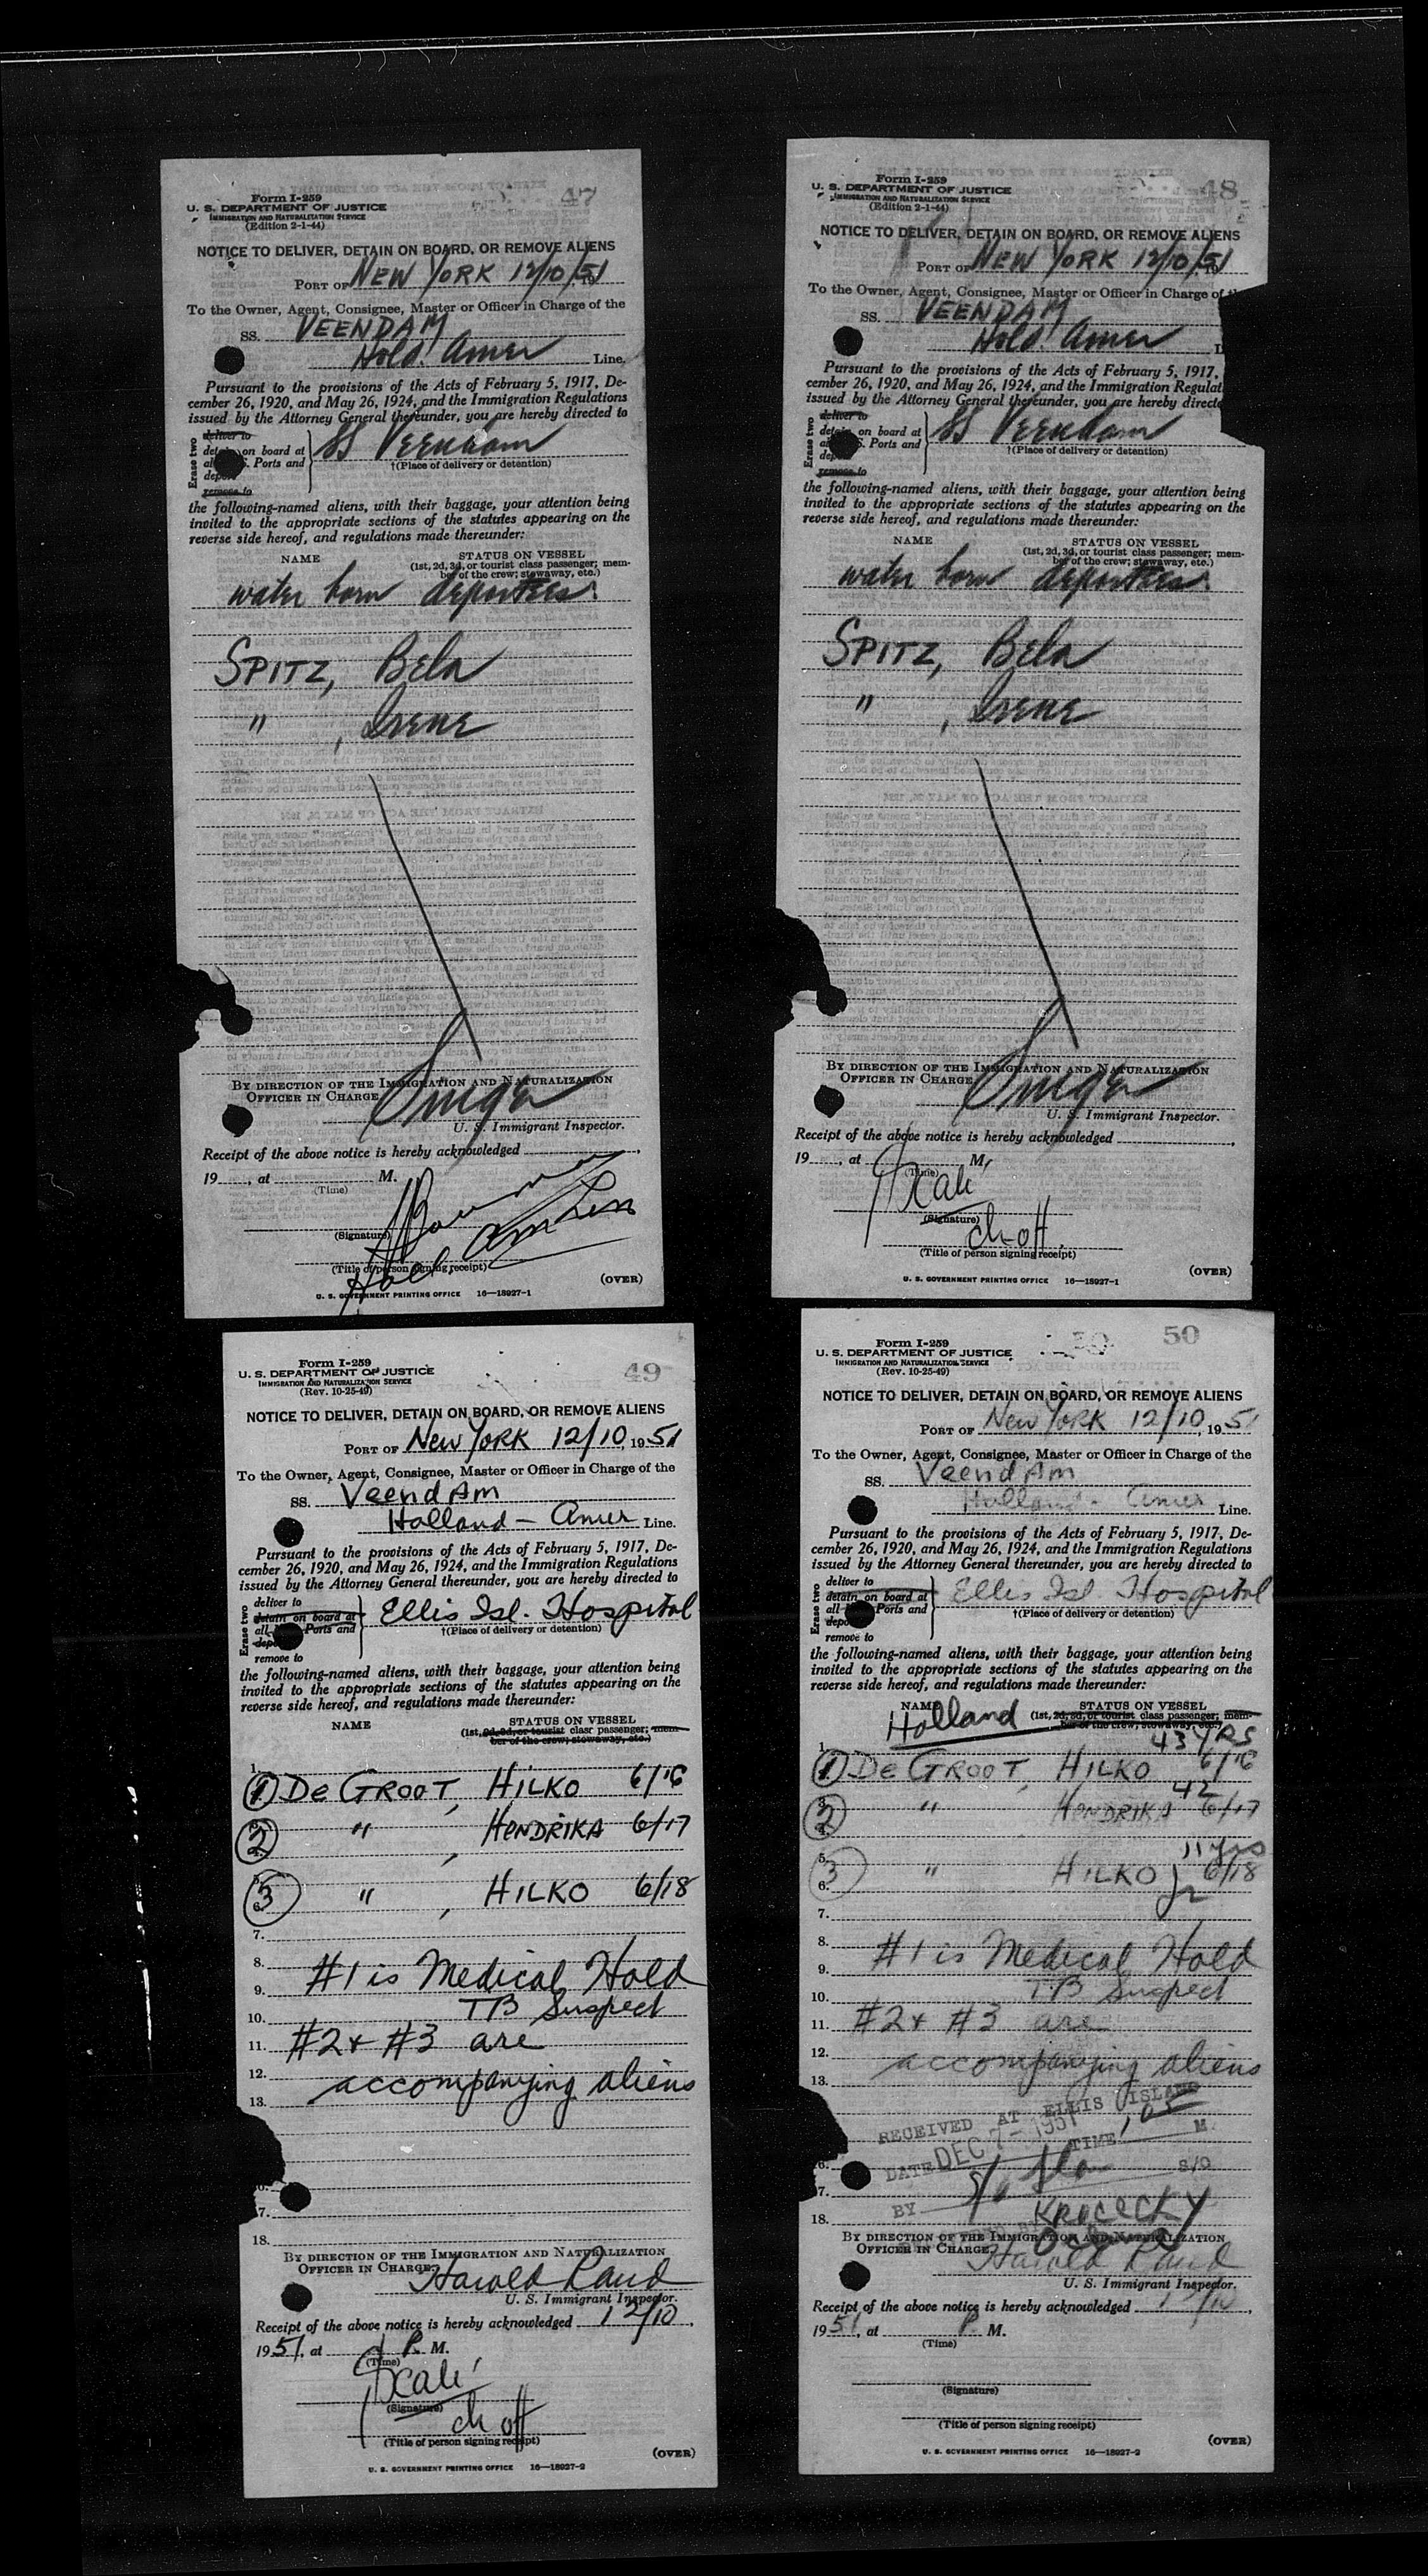 47
Form I-259
U. S. DEPARTMENT OF JUSTICE
IMMIGRATION AND NATURALIZATION SERVICE
(Edition 2-1-44)
NOTICE TO DELIVER, DETAIN ON BOARD, OR REMOVE ALIENS
PORT OF NEW YORK 12/10/51
To the Owner, Agent, Consignee, Master or Officer in Charge of the
SS. VEENDAM
Hold. Amer Line.
Pursuant to the provisions of the Acts of February 5, 1917, De-
cember 26, 1920, and May 26, 1924, and the Immigration Regulations
issued by the Attorney General thereunder, you are hereby directed to
Erase two
deliver to
on board at
S. Ports and
remove to
SS Veendam
†(Place of delivery or detention)
the following-named aliens, with their baggage, your attention being
invited to the appropriate sections of the statutes appearing on the
reverse side hereof, and regulations made thereunder:
NAME STATUS ON VESSEL
(1st, 2d, 3d, or tourist class passenger; mem-
ber of the crew; stowaway, etc.)
water born deportees.
SPITZ, Bela
" , Irene
BY DIRECTION OF THE IMMIGRATION AND NATURALIZATION
OFFICER IN CHARGE
U. S. Immigrant Inspector.
Receipt of the above notice is hereby acknowledged
19 , at M.
(Time)
(Signature)
Holl Am Line
(Title of person signing receipt)
(OVER)
U. S. GOVERNMENT PRINTING OFFICE 16—18927-1
48
Form I-259
U. S. DEPARTMENT OF JUSTICE
IMMIGRATION AND NATURALIZATION SERVICE
(Edition 2-1-44)
NOTICE TO DELIVER, DETAIN ON BOARD, OR REMOVE ALIENS
PORT OF NEW YORK 12/10/51
To the Owner, Agent, Consignee, Master or Officer in Charge of
SS. VEENDAM
Hold. Amer
Pursuant to the provisions of the Acts of February 5, 1917,
cember 26, 1920, and May 26, 1924, and the Immigration Regulat
issued by the Attorney General thereunder, you are hereby directe
Erase two
deliver to
on board at
S. Ports and
remove to
SS Veendam
†(Place of delivery or detention)
the following-named aliens, with their baggage, your attention being
invited to the appropriate sections of the statutes appearing on the
reverse side hereof, and regulations made thereunder:
NAME STATUS ON VESSEL
(1st, 2d, 3d, or tourist class passenger; mem-
ber of the crew; stowaway, etc.)
water born deportees.
SPITZ, Bela
" , Irene
BY DIRECTION OF THE IMMIGRATION AND NATURALIZATION
OFFICER IN CHARGE
U. S. Immigrant Inspector.
Receipt of the above notice is hereby acknowledged
19 , at M.
(Time)
(Signature)
ch off.
(Title of person signing receipt)
(OVER)
U. S. GOVERNMENT PRINTING OFFICE 16—18927-1
49
Form I-259
U. S. DEPARTMENT OF JUSTICE
IMMIGRATION AND NATURALIZATION SERVICE
(Rev. 10-25-49)
NOTICE TO DELIVER, DETAIN ON BOARD, OR REMOVE ALIENS
PORT OF New YORK 12/10, 1951
To the Owner, Agent, Consignee, Master or Officer in Charge of the
SS. VeendAm
Holland - Amer Line.
Pursuant to the provisions of the Acts of February 5, 1917, De-
cember 26, 1920, and May 26, 1924, and the Immigration Regulations
issued by the Attorney General thereunder, you are hereby directed to
Erase two
deliver to
detain on board at
all Ports and
remove to
Ellis Isl. Hospital
†(Place of delivery or detention)
the following-named aliens, with their baggage, your attention being
invited to the appropriate sections of the statutes appearing on the
reverse side hereof, and regulations made thereunder:
NAME STATUS ON VESSEL
(1st, 2d, 3d, or tourist class passenger; mem-
ber of the crew; stowaway, etc.)
1.
1 De GROOT, HILKO 6/16
2 " , HENDRIKA 6/17
3 " , HILKO 6/18
6.
7.
8. #1 is Medical Hold
9.
10. TB Suspect
11. #2 & #3 are
12.
13. accompanying aliens
7.
18.
BY DIRECTION OF THE IMMIGRATION AND NATURALIZATION
OFFICER IN CHARGE:
Harold Rand
U. S. Immigrant Inspector.
Receipt of the above notice is hereby acknowledged 12/10,
1951, at 1 P. M.
(Time)
(Signature)
ch off
(Title of person signing receipt)
(OVER)
U. S. GOVERNMENT PRINTING OFFICE 16—18927-2
50
Form I-259
U. S. DEPARTMENT OF JUSTICE
IMMIGRATION AND NATURALIZATION SERVICE
(Rev. 10-25-49)
NOTICE TO DELIVER, DETAIN ON BOARD, OR REMOVE ALIENS
PORT OF New YORK 12/10, 1951
To the Owner, Agent, Consignee, Master or Officer in Charge of the
SS. VeendAm
Holland - Amer Line.
Pursuant to the provisions of the Acts of February 5, 1917, De-
cember 26, 1920, and May 26, 1924, and the Immigration Regulations
issued by the Attorney General thereunder, you are hereby directed to
Erase two
deliver to
detain on board at
all Ports and
remove to
Ellis Isl Hospital
†(Place of delivery or detention)
the following-named aliens, with their baggage, your attention being
invited to the appropriate sections of the statutes appearing on the
reverse side hereof, and regulations made thereunder:
NAME STATUS ON VESSEL
Holland (1st, 2d, 3d, or tourist class passenger; mem-
ber of the crew; stowaway, etc.)
1. 43 YRS
1 De GROOT, HILKO 6/16
42
2 " HENDRIKA 6/17
5. 11 yrs
3 " HILKO 6/18
6.
7.
8. #1 is Medical Hold
9.
10. TB Suspect
11. #2 & #3 are
12.
13. accompanying aliens
RECEIVED AT ELLIS ISLAND
DATE DEC 1951 TIME 1 05 M.
S/O
7. BY
18.
BY DIRECTION OF THE IMMIGRATION AND NATURALIZATION
OFFICER IN CHARGE
Harold Rand
U. S. Immigrant Inspector.
Receipt of the above notice is hereby acknowledged 12/10,
1951, at P. M.
(Time)
(Signature)
(Title of person signing receipt)
(OVER)
U. S. GOVERNMENT PRINTING OFFICE 16—18927-2